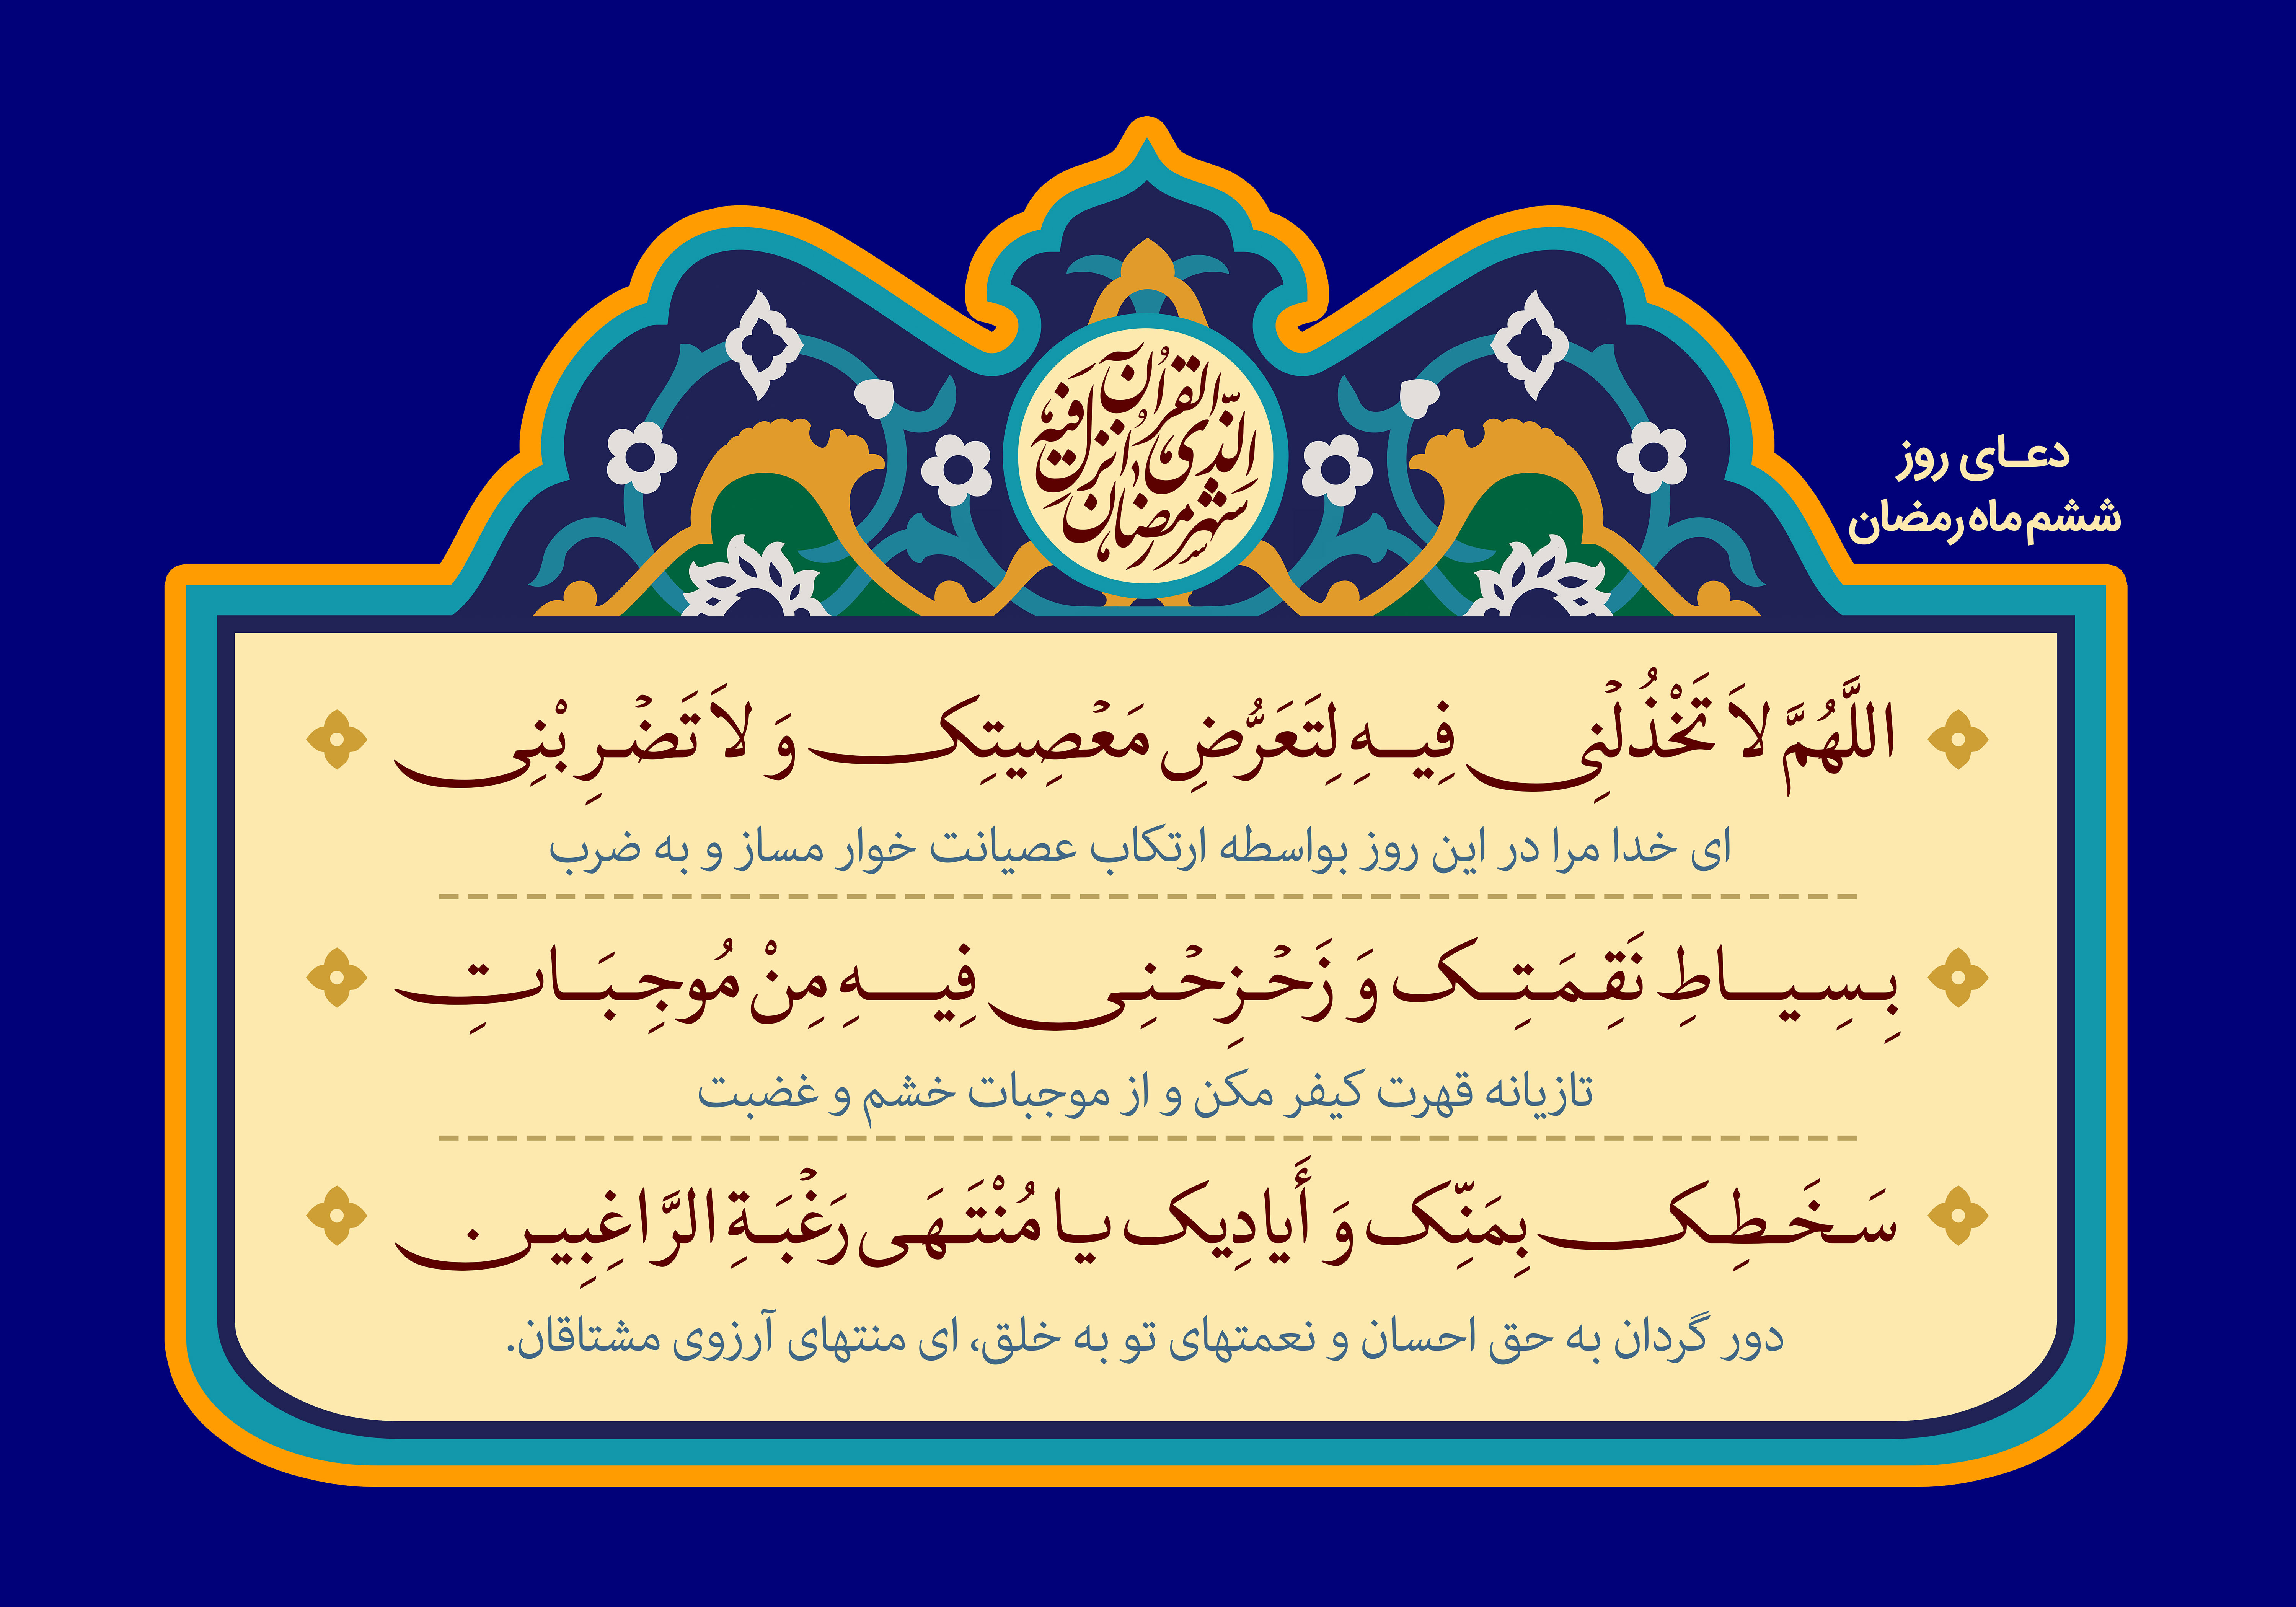 شهر رمضان
الّذی انزل فیه
القرآن
دعای روز
ششم ماه رمضان
اللَّهُمَّ لاَ تَخْذُلْنِی فِیهِ لِتَعَرُّضِ مَعْصِیتِک وَ لاَ تَضْرِبْنِی
ای خدا مرا در این روز بواسطه ارتکاب عصیانت خوار مساز و به ضرب
بِسِیاطِ نَقِمَتِک وَ زَحْزِحْنِی فِیهِ مِنْ مُوجِبَاتِ
تازیانه قهرت کیفر مکن و از موجبات خشم و غضبت
سَخَطِک بِمَنِّک وَ أَیادِیک یا مُنْتَهَی رَغْبَةِ الرَّاغِبِین
دور گردان به حق احسان و نعمتهای تو به خلق، ای منتهای آرزوی مشتاقان.